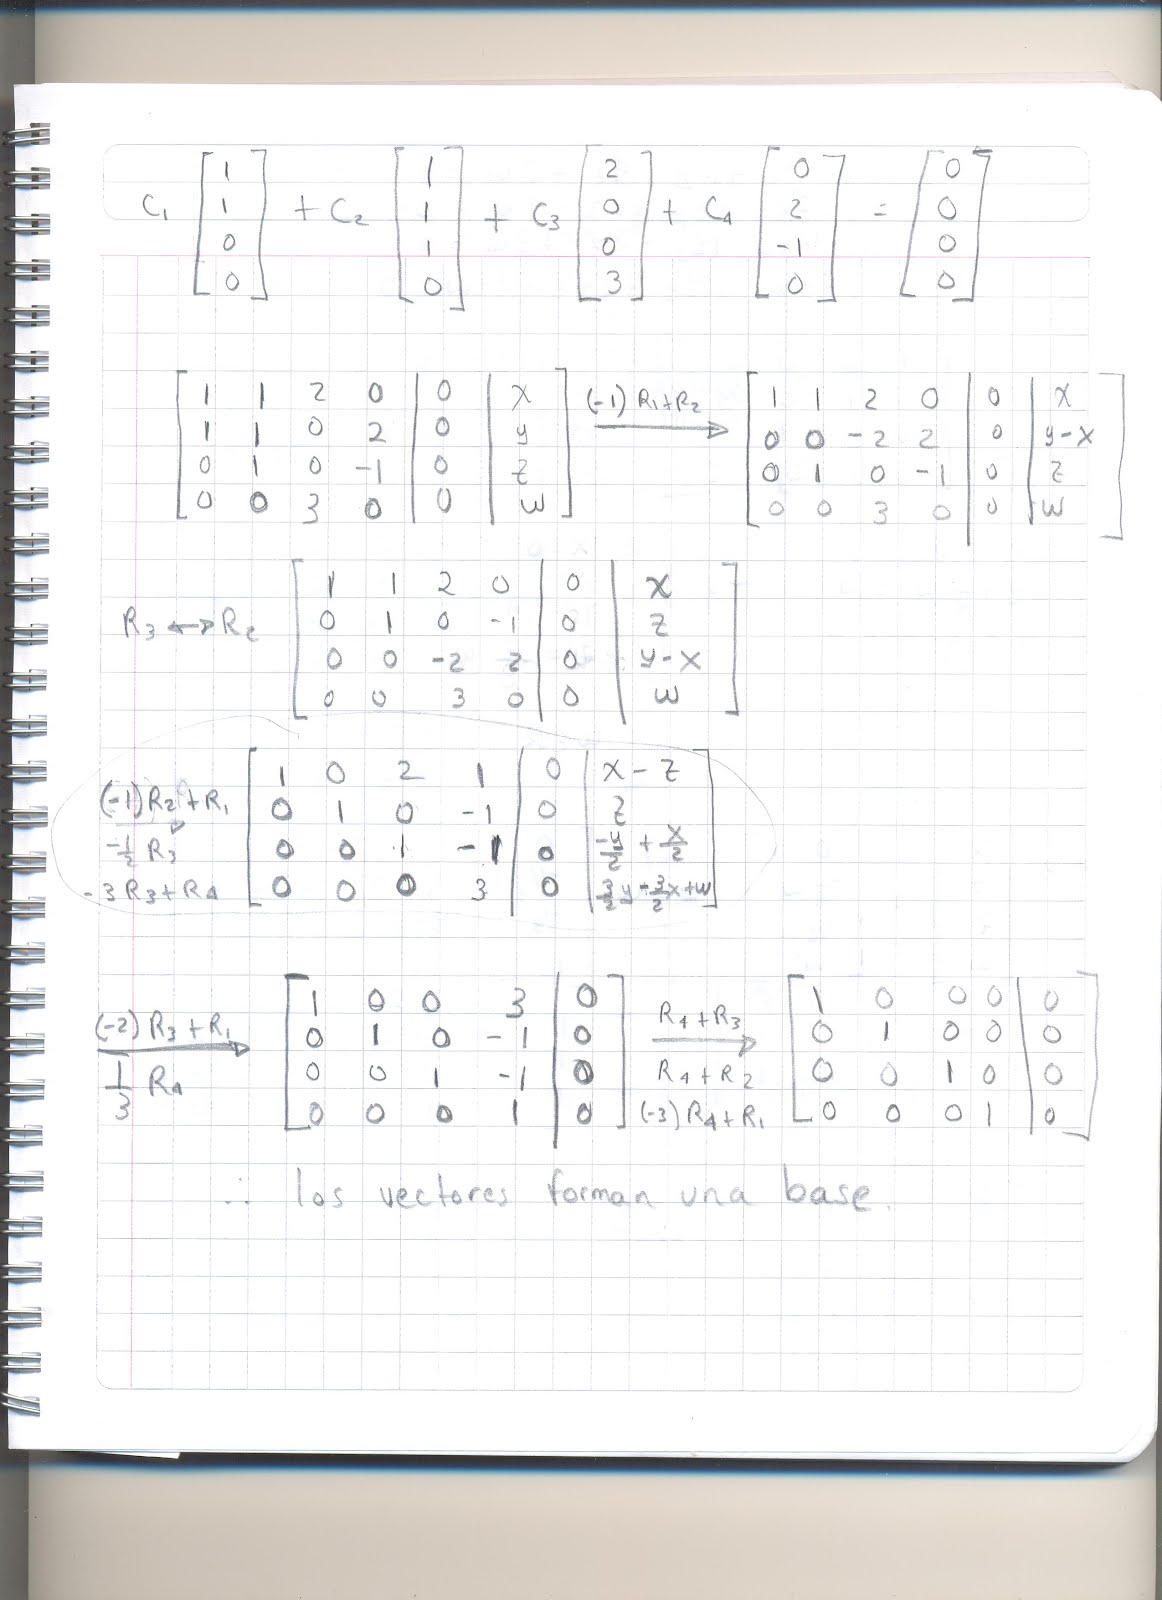 C1 [1 1 0 0] + C2 [1 1 1 0] + C3 [2 0 0 3] + C4 [0 2 -1 0] = [0 0 0 0]
[1 1 2 0 | 0 | x
1 1 0 2 | 0 | y
0 1 0 -1 | 0 | z
0 0 3 0 | 0 | w]
(-1) R1+R2 →
[1 1 2 0 | 0 | x
0 0 -2 2 | 0 | y-x
0 1 0 -1 | 0 | z
0 0 3 0 | 0 | w]
R3 ↔ R2
[1 1 2 0 | 0 | x
0 1 0 -1 | 0 | z
0 0 -2 2 | 0 | y-x
0 0 3 0 | 0 | w]
(-1)R2+R1 →
-1/2 R3
-3R3+R4
[1 0 2 1 | 0 | x-z
0 1 0 -1 | 0 | z
0 0 1 -1 | 0 | -y/2 + x/2
0 0 0 3 | 0 | 3/2y-3/2x+w]
(-2) R3+R1 →
1/3 R4
[1 0 0 3 | 0
0 1 0 -1 | 0
0 0 1 -1 | 0
0 0 0 1 | 0]
R4+R3 →
R4+R2
(-3)R4+R1
[1 0 0 0 | 0
0 1 0 0 | 0
0 0 1 0 | 0
0 0 0 1 | 0]
∴ los vectores forman una base.